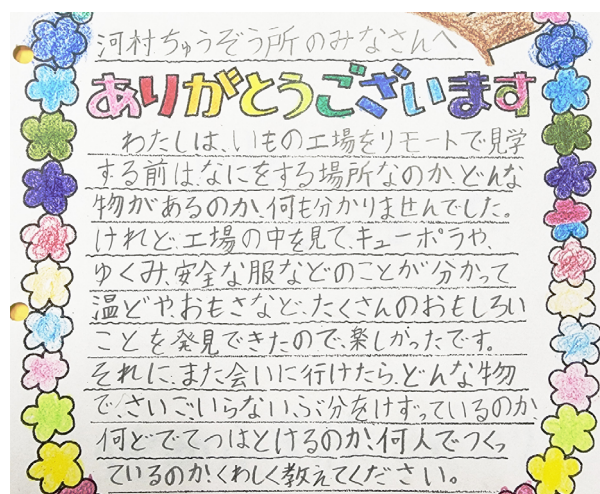 河村ちゅうぞう所のみなさんへ
ありがとうございます
わたしは、いもの工場をリモートで見学
する前は、なにをする場所なのか、どんな
物があるのか、何も分かりませんでした。
けれど、工場の中を見て、キューポラや、
ゆくみ、安全な服などのことが分かって
温どや、おもさなど、たくさんのおもしろい
ことを発見できたので、楽しかったです。
それに、また会いに行けたら、どんな物
で、さいごいらない、ぶ分をけずっているのか、
何どでてつはとけるのか、何人でつくっ
ているのか、くわしく教えてください。